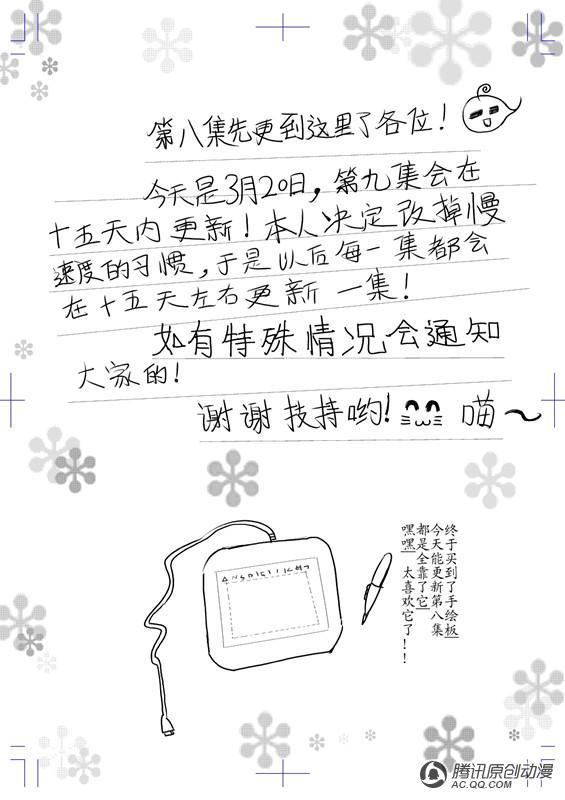 第八集先更到这里了各位!
今天是3月20日,第九集会在
十五天内更新!本人决定改掉慢
速度的习惯,于是以后每一集都会
在十五天左右更新一集!
如有特殊情况会通知
大家的!
谢谢扶持哟! 喵~
终于买到了手绘板
今天能更新第八集
都是全靠了它
嘿嘿 太喜欢它了!!
腾讯原创动漫
AC.QQ.COM